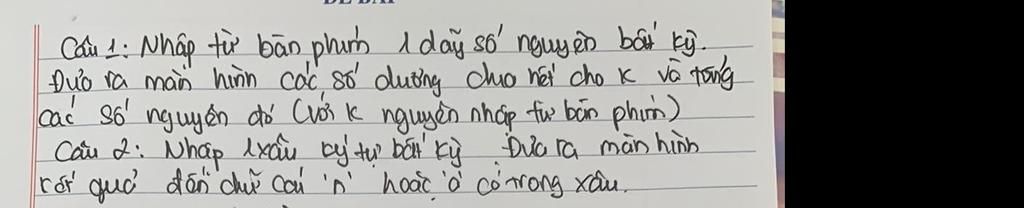 ĐỀ BÀI
Câu 1: Nhập từ bàn phím 1 dãy số nguyên bất kỳ.
Đưa ra màn hình các số dương chia hết cho K và tổng
các số nguyên đó (với K nguyên nhập từ bàn phím)
Câu 2: Nhập 1 xâu ký tự bất kỳ. Đưa ra màn hình
kết quả đếm chữ cái 'n' hoặc 'o' có trong xâu.